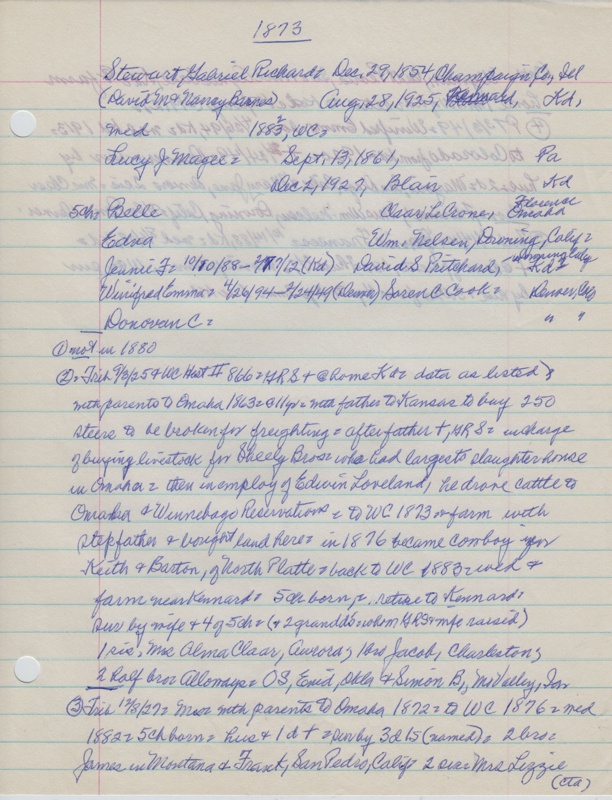 1873
Stewart, Gabriel Richard = Dec. 29, 1854, Champaign Co, Ill
(David M & Nancy Barnes) Aug. 28, 1925, Kd,
med 1883, WC =
Lucy J. Magee = Sept. 13, 1861, Pa
Dec 2, 1927, Blair Kd
5ch = Belle Oscar LeCrone, Florence Omaha
Edna Wm. Nelsen, Corning, Calif =
Jennie F = 10/10/88 - 2/ /12 (Kd) David S. Pritchard, Kd =
Winifred Emma = 4/26/94 - 2/24/49 (Denver) Soren C Cook = Denver, Colo
Donovan C = " "
① not in 1880
② = Trib 9/3/25 & WC Hist II 866 = GRS + @ home Kd = data as listed;
with parents to Omaha 1863 = @ 11yr = with father to Kansas to buy 250
steers to be broken for freighting = after father +, GRS = in charge
of buying livestock for Sheely Bros who had largest slaughter house
in Omaha = then in employ of Edwin Loveland, he drove cattle to
Omaha & Winnebago Reservations = to WC 1873 on farm with
stepfather & bought land here = in 1876 became cowboy for
Keith & Barton, of North Platte = back to WC 1883 = wed &
farm near Kennard = 5ch born, retire to Kennard =
Sur by wife & 4 of 5ch = (& 2 grandds = whom GRS & wife raised)
1 sis, Mrs Alma Claar, Aurora; 1 bro Jacob, Charleston;
2 half bros Allomays = OS, Enid, Okla & Simon B, Mo Valley, Ia =
③ Trib 12/8/27 = Mrs = with parents to Omaha 1872 = to WC 1876 = med
1882 = 5ch born = hus & 1 d + = sur by 3d 1s (named) = 2 bro =
James in Montana & Frank, San Pedro, Calif = 2 sis = Mrs Lizzie
(ctd)